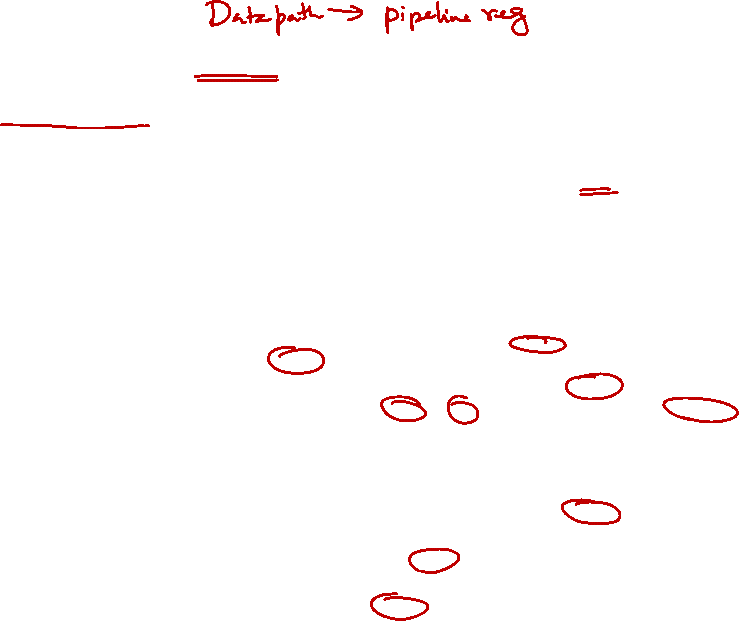 Datapath → pipeline reg